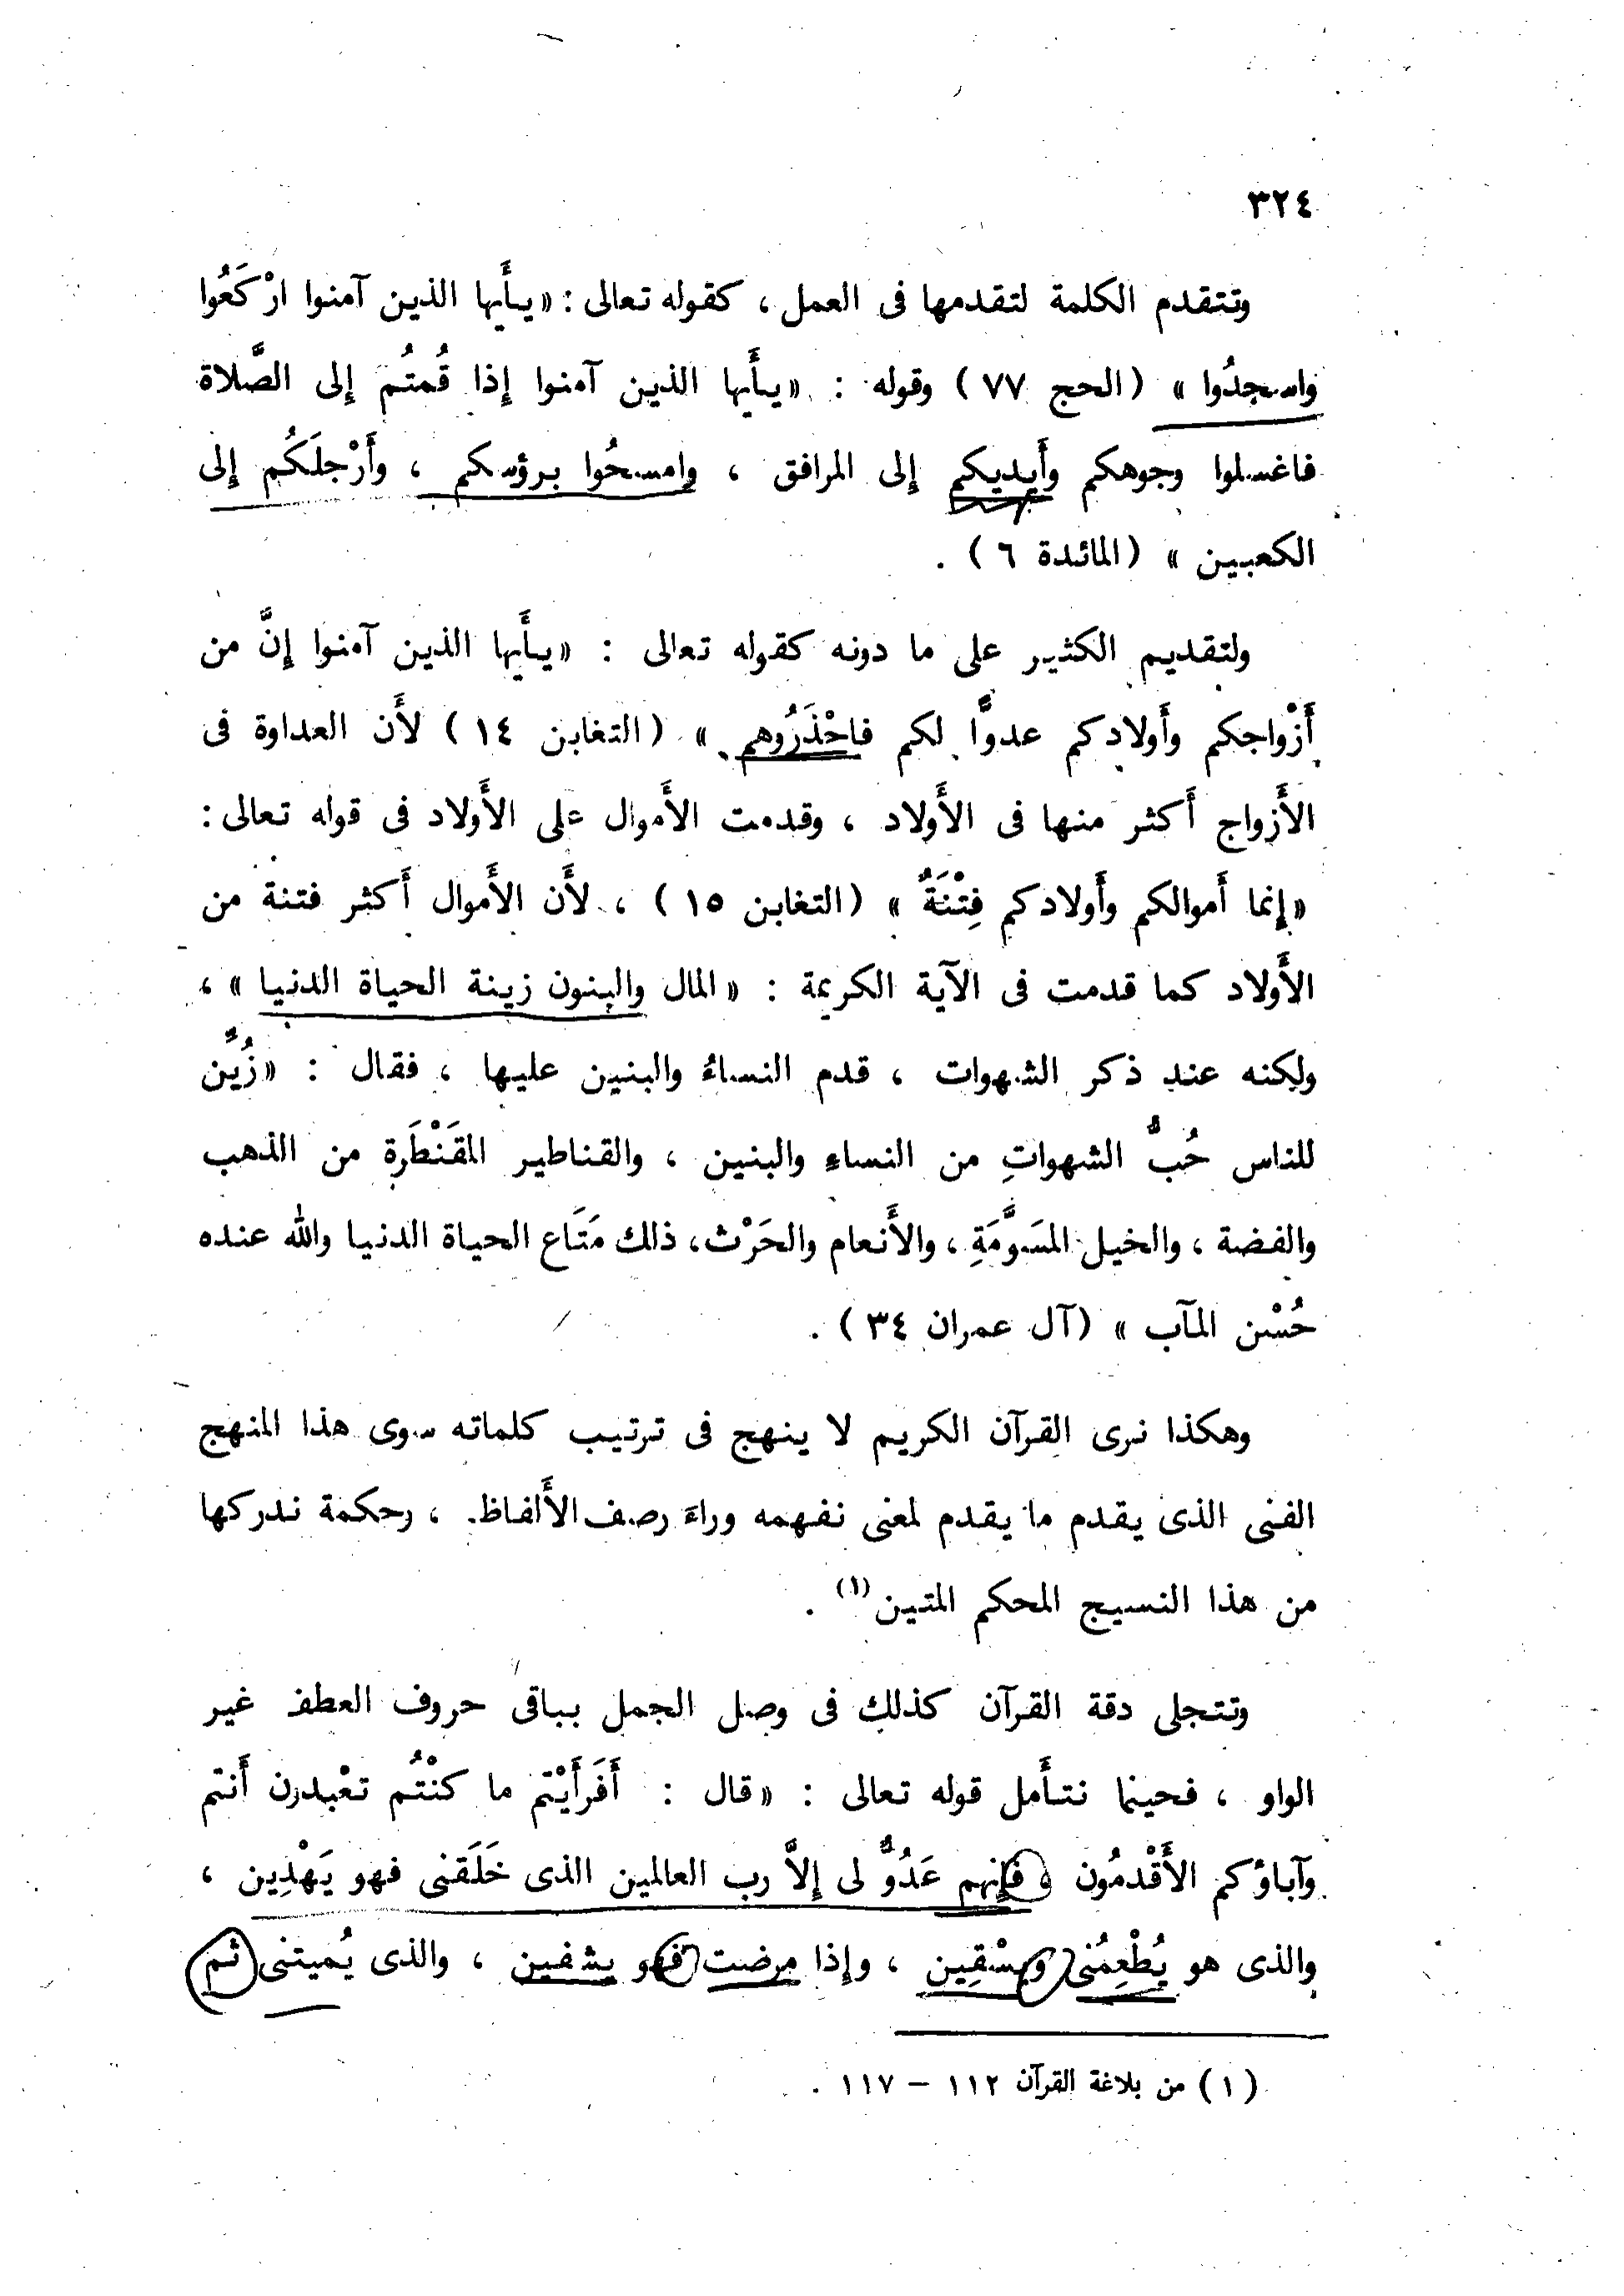 ٣٢٤
وتتقدم الكلمة لتقدمها فى العمل ، كقوله تعالى : «يأَيها الذين آمنوا ارْكَعُوا
واسجدُوا » (الحج ٧٧) وقوله : «يأَيها الذين آمنوا إذا قُمتُم إلى الصَّلاة
فاغسلوا وجوهكم وأَيديكم إلى المرافق ، وامسحُوا برؤسكم ، وأَرْجلَكُم إلى
الكعبين » (المائدة ٦) .
ولتقديم الكثير على ما دونه كقوله تعالى : «يأَيها الذين آمنوا إنَّ من
أَزْواجكم وأَولادكم عدوًّا لكم فاحْذَرُوهم » (التغابن ١٤) لأَن العداوة فى
الأَزواج أَكثر منها فى الأَولاد ، وقدمت الأَموال على الأَولاد فى قوله تعالى :
«إنما أَموالكم وأَولادكم فِتْنَةٌ » (التغابن ١٥) ، لأَن الأَموال أَكثر فتنة من
الأَولاد كما قدمت فى الآية الكريمة : «المال والبنون زينة الحياة الدنيا » ،
ولكنه عند ذكر الشهوات ، قدم النساءُ والبنين عليها ، فقال : «زُيِّن
للناس حُبُّ الشهواتِ من النساءِ والبنين ، والقناطير المقَنْطَرة من الذهب
والفضة ، والخيل المسَوَّمَةِ ، والأَنعام والحَرْث ، ذلك مَتَاع الحياة الدنيا والله عنده
حُسْن المآب » (آل عمران ٣٤) .
وهكذا نرى القرآن الكريم لا ينهج فى ترتيب كلماته سوى هذا المنهج
الفنى الذى يقدم ما يقدم لمعنى نفهمه وراءَ رصف الأَلفاظ ، وحكمة ندركها
من هذا النسيج المحكم المتين(١) .
وتتجلى دقة القرآن كذلك فى وصل الجمل بباقى حروف العطف غير
الواو ، فحينما نتأَمل قوله تعالى : «قال : أَفَرأَيْتم ما كنْتُم تعْبدون أَنتم
وآباؤكم الأَقْدمُون فإنهم عَدُوٌّ لى إلاَّ رب العالمين الذى خَلَقنى فهو يَهْدِين ،
والذى هو يُطْعِمُنى ويسْقِين ، وإذا مرضت فهو يشفين ، والذى يُميتنى ثم
(١) من بلاغة القرآن ١١٢ – ١١٧ .